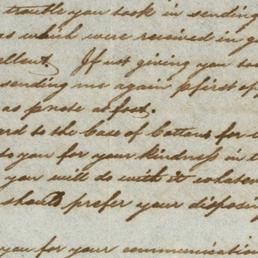 trouble you took in sending
as which were received in g
ellent. If not giving you too
sending me again first of
as pr as
and to the Case of Cottons for
to you for your kindness in t
you will do with it whatev
should prefer your disposin
you for your communication